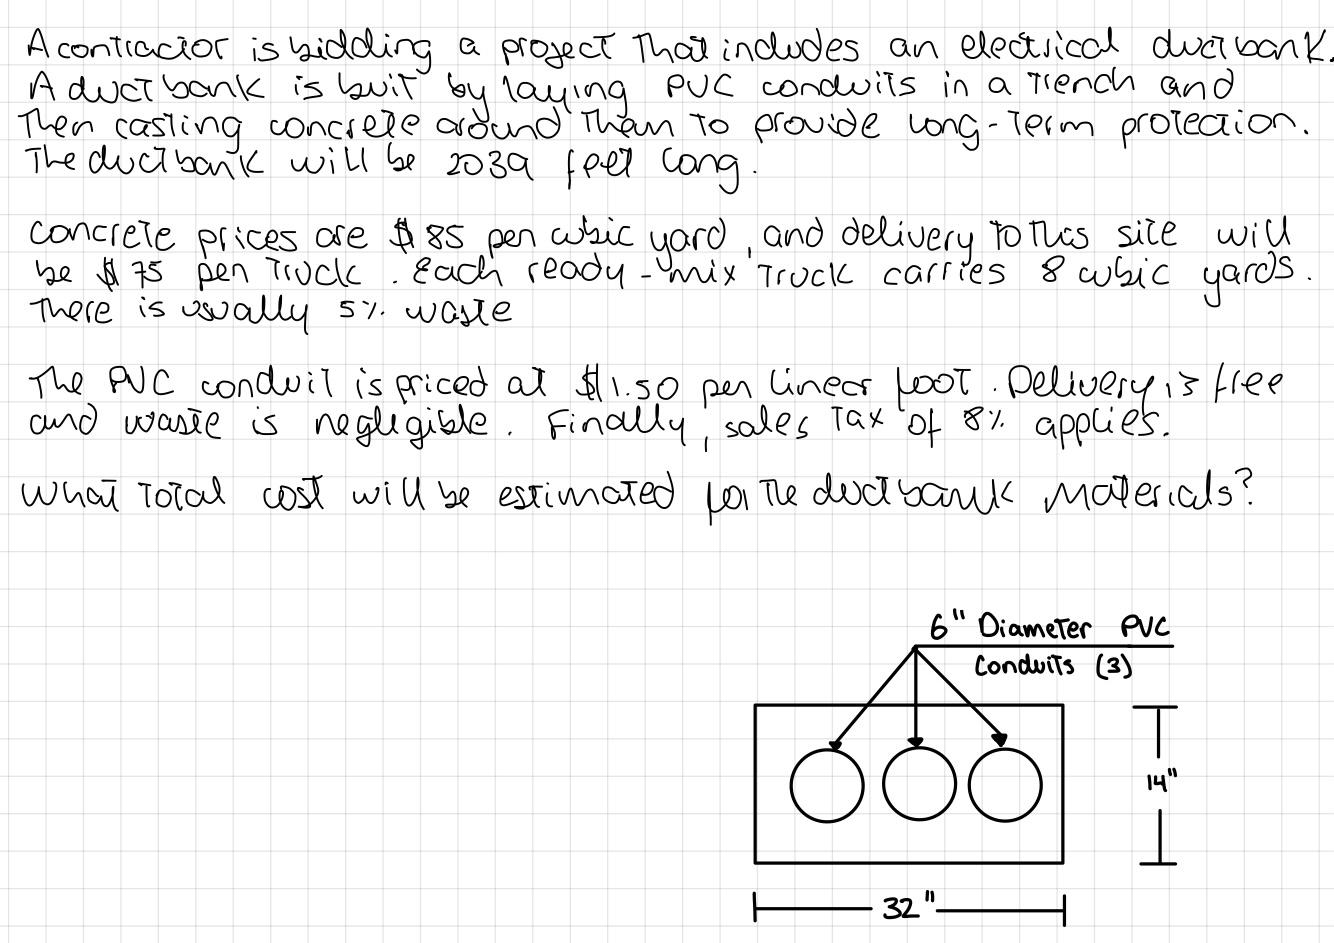 A contractor is bidding a project that includes an electrical duct bank.
A duct bank is buit by laying PVC conduits in a trench and
then casting concrete around them to provide long-term protection.
The duct bank will be 2039 feet long.
Concrete prices are $85 per cubic yard, and delivery to this site will
be $75 per truck. Each ready-mix truck carries 8 cubic yards.
There is usually 5% waste
The PVC conduit is priced at $1.50 per linear foot. Delivery is free
and waste is negligible. Finally, sales tax of 8% applies.
What total cost will be estimated for the duct bank materials?
6" Diameter PVC
Conduits (3)
14"
32"